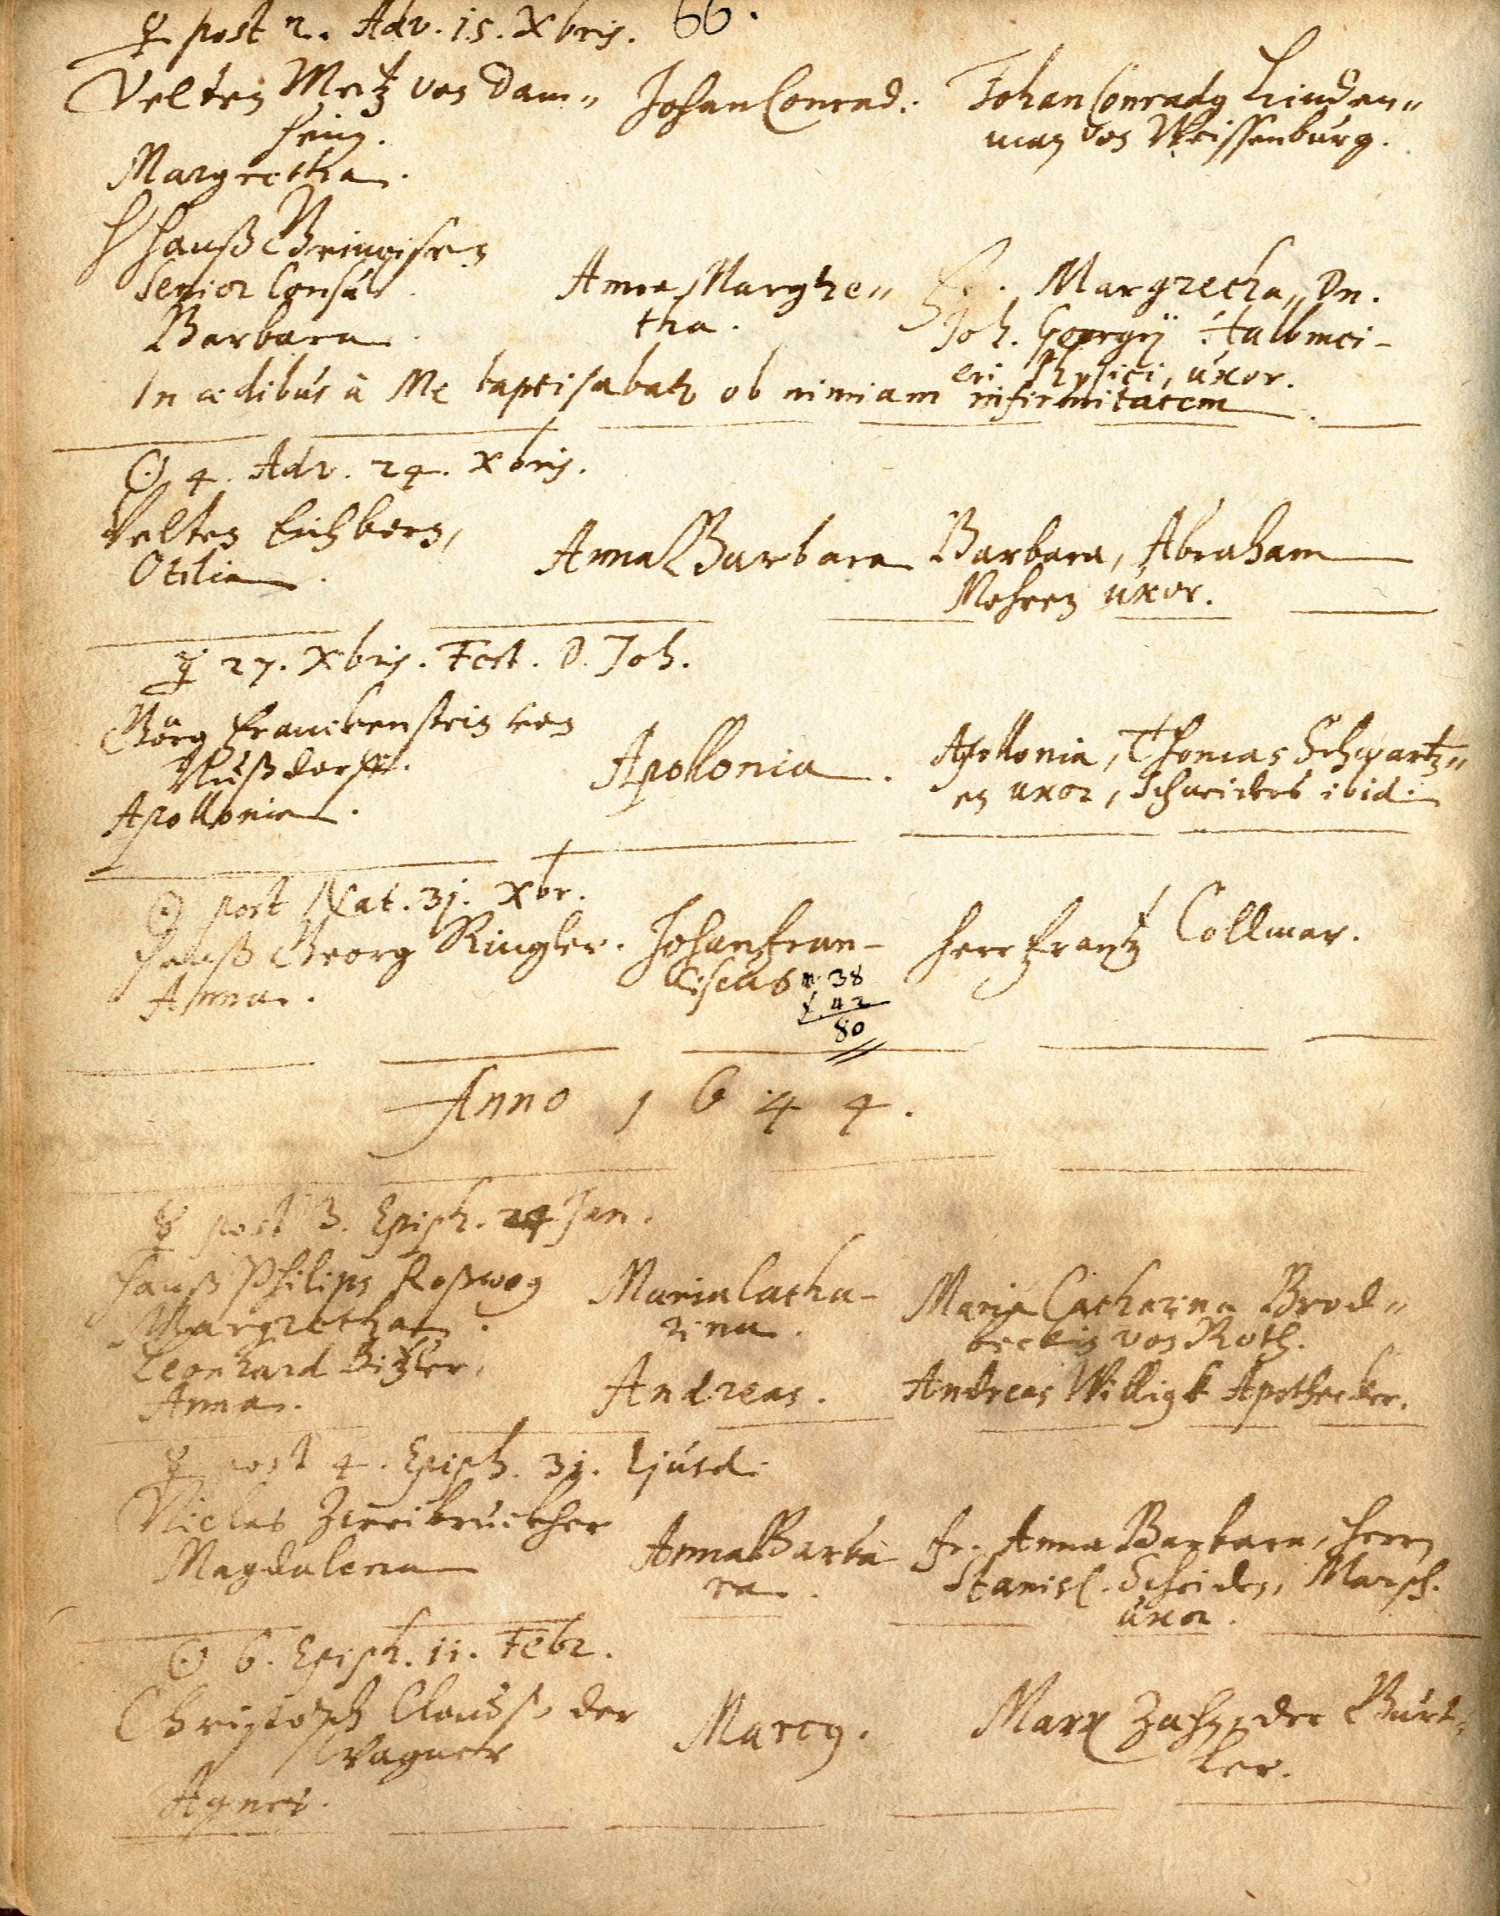 66.
♀ post 2. Adv. 15. Xbris.
Velten Metz von Dam„
heim.
Margretha.
Johan Conrad.
Johan Conrady Linden„
man von Weissenburg.
H Hanß Geinvisen
Senior Consul.
Barbara.
Anna Margre„
tha.
Fr. Margretha, Dn.
Joh. Georgÿ Halbmei-
eri Physici, uxor.
In ædibus à Me baptisabatur ob nimiam infirmitatem
☉ 4. Adv. 24. Xbris.
Velten Eichborn,
Otilia.
Anna Barbara
Barbara, Abraham
Mohren uxor.
☿ 27. Xbris. Fest. D. Joh.
Görg Franckenstein von
Nußdorff.
Apollonia.
Apollonia.
Apollonia, Thomas Schwartz„
en uxor, Schneiders ibid:
☉ post Nat. 31. Xbr.
Hanß Georg Ringler.
Anna.
Johan Fran-
ciscus
m. 38
f. 42
80
Herr Frantz Collmar.
Anno 1644.
☿ post 3. Epiph. 24 Jan.
Hanß Philips Roßwog
Margretha.
Maria Catha-
rina.
Maria Catharina Brod„
beckin von Roth.
Leonhard Bitzler,
Anna.
Andreas.
Andreas Willigk Apothecker.
☿ post 4. Epiph. 31. Ejusd:
Niclas Zweibruckher
Magdalena
Anna Barba
ra.
Fr. Anna Barbara, Herrn
Stanisl. Scheiden, Marsch.
uxor.
☉ 6. Epiph. 11. Febr.
Christoph Clauss der
Wagner
Agnes.
Marcus.
Marx Zahn, der Gürt„
ler.